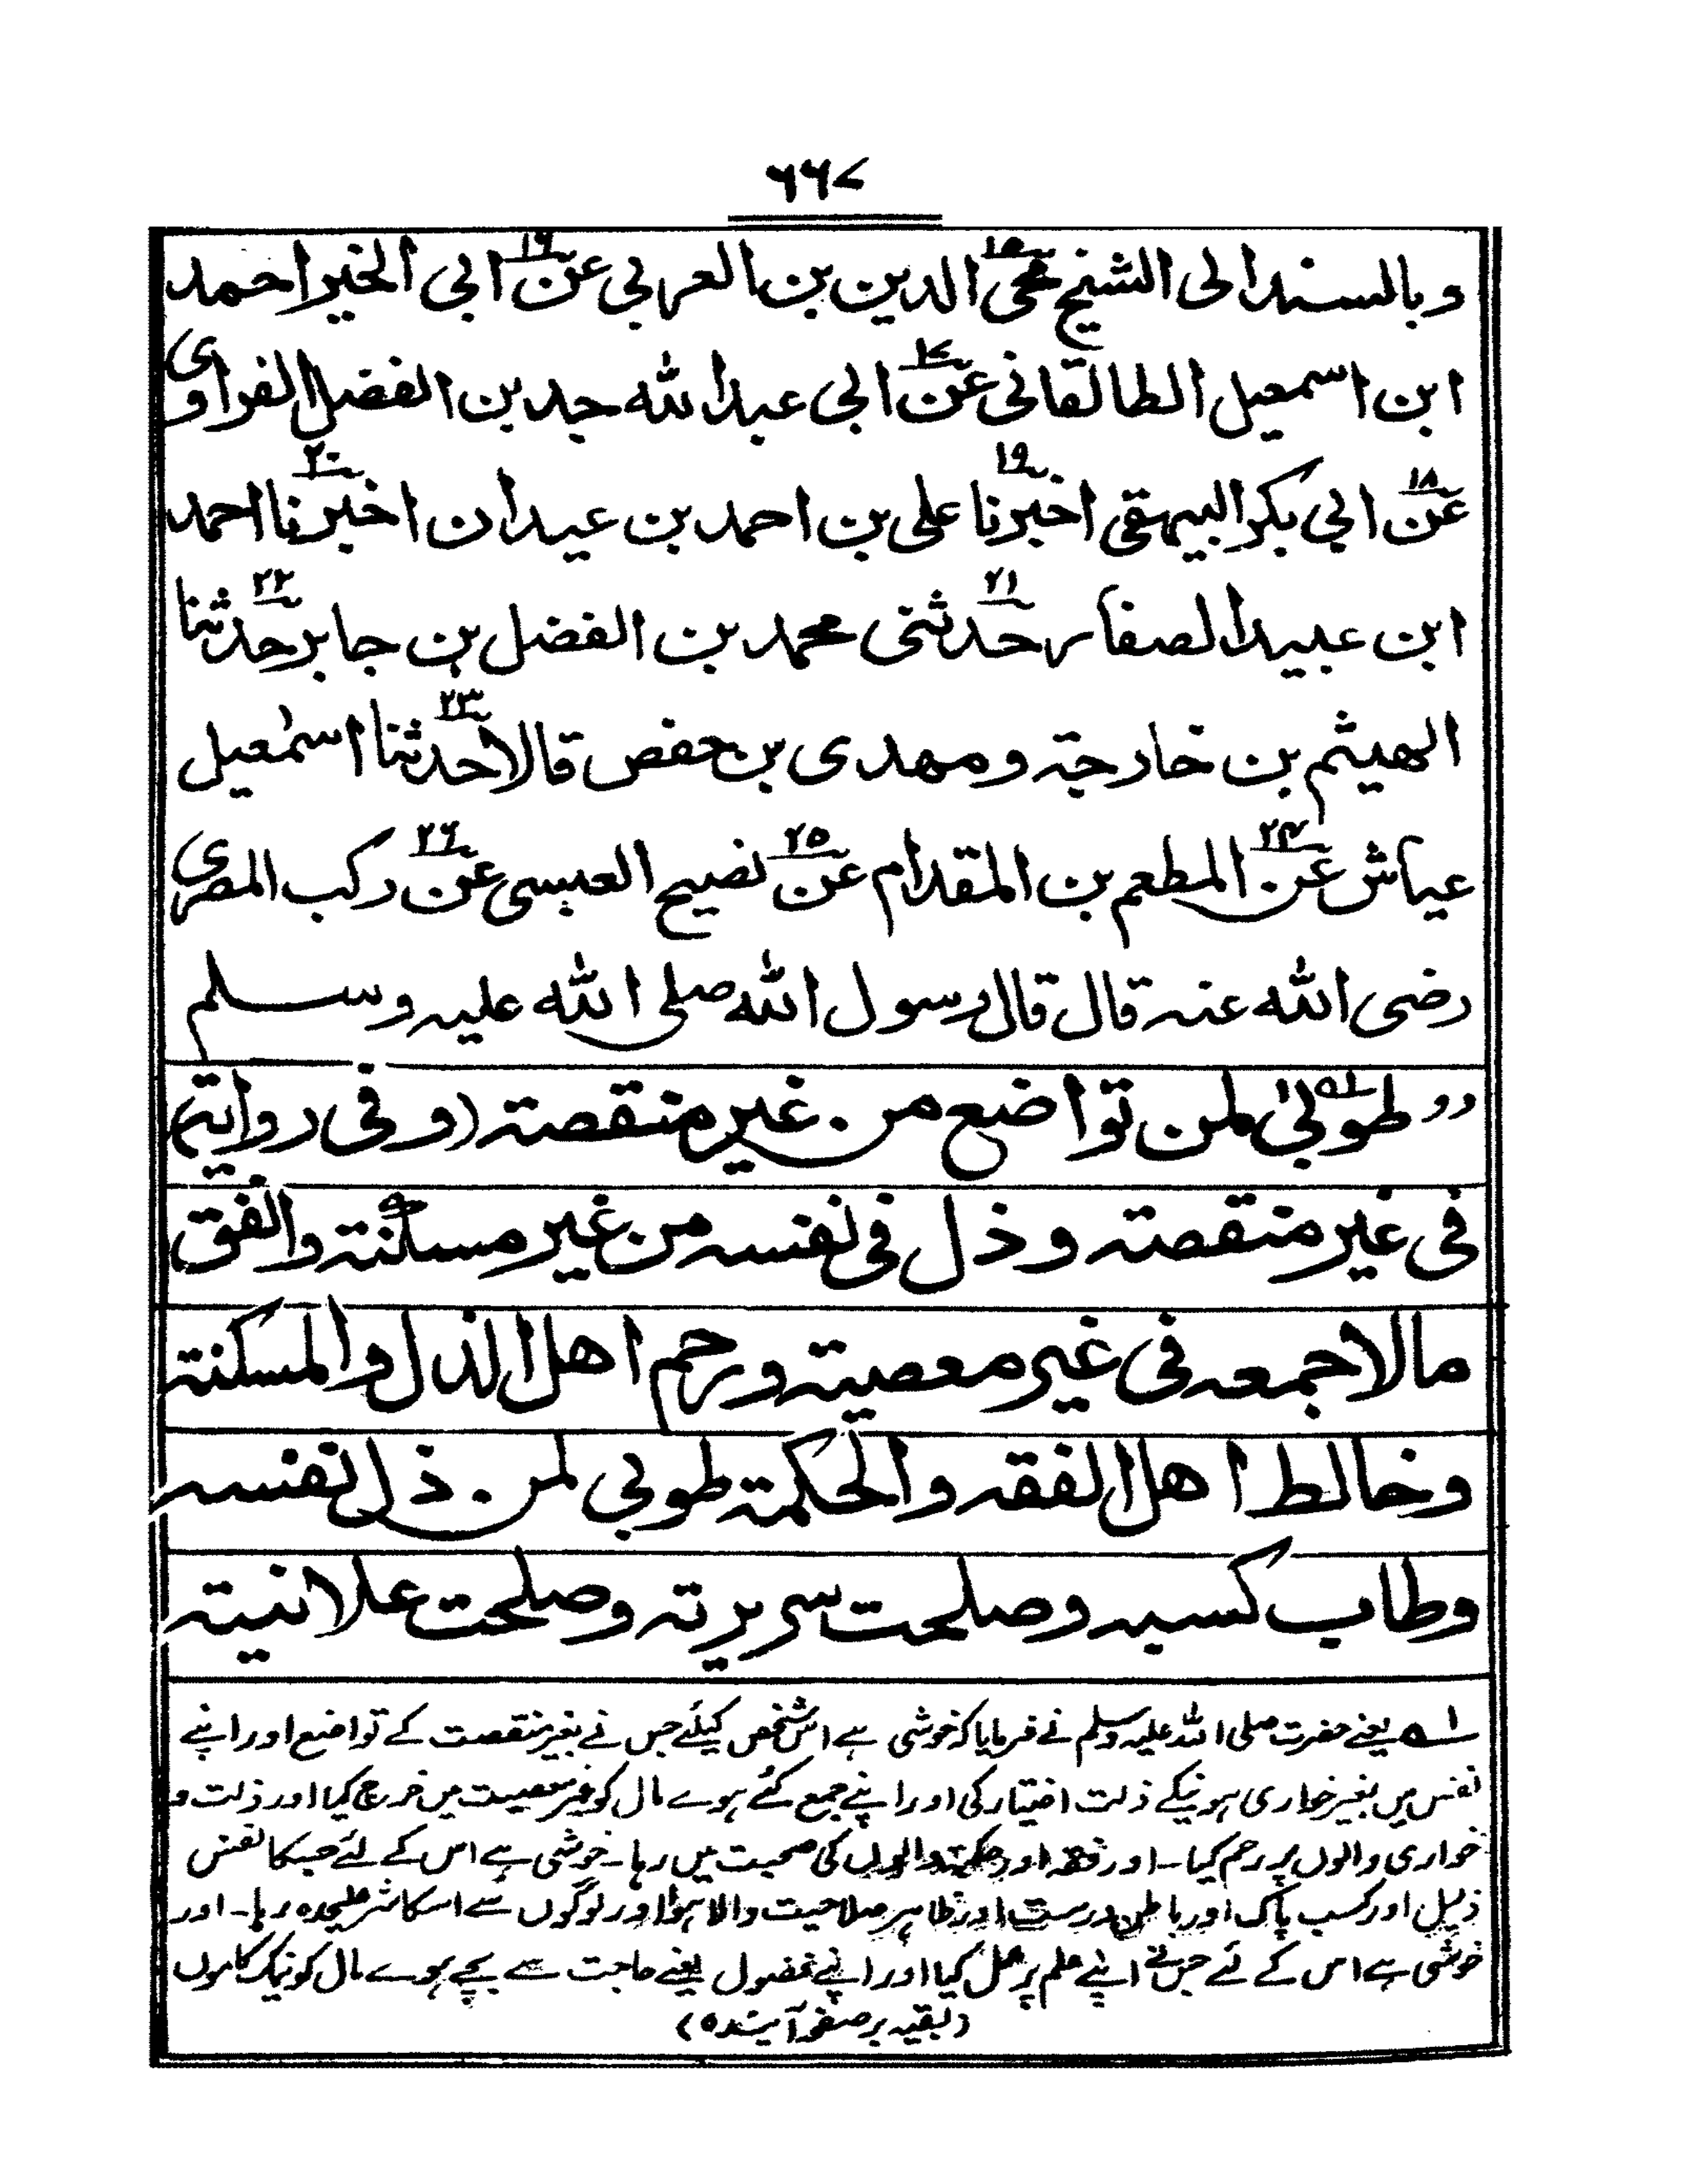 ۶۶۷
وبالسند الی الشیخ محی الدین بن العربی عن ابی الخیر احمد
۱۵ ۱۶
ابن اسمعیل الطالقانی عن ابی عبد الله محمد بن الفضل الفراوی
۱۷
عن ابی بکر البیهقی اخبرنا علی بن احمد بن عبدان اخبرنا احمد
۱۸ ۱۹ ۲۰
ابن عبید الصفار حدثنی محمد بن الفضل بن جابر حدثنا
۲۱ ۲۲
الهیثم بن خارجة ومهدی بن حفص قالا حدثنا اسمٰعیل
۲۳
عیاش عن المطعم بن المقدام عن نصیح العبسی عن رکب المصری
۲۴ ۲۵ ۲۶
رضی الله عنه قال قال رسول الله صلی الله علیه وسلم
”طوبیٰ لمن تواضع من غیر منقصة (وفی روایة)
فی غیر منقصة وذل فی نفسه من غیر مسکنة وانفق
مالا جمعه فی غیر معصیة ورحم اهل الذل والمسکنة
وخالط اهل الفقه والحکمة طوبی لمن ذل نفسه
وطاب کسبه وصلحت سریرته وصلحت علانیته
۱؎ یعنے حضرت صلی اللہ علیہ وسلم نے فرمایا کہ خوشی ہے اس شخص کیلئے جس نے بغیر منقصت کے تواضع اور اپنے
نفس میں بغیر خواری ہونیکے ذلت اختیار کی اور اپنے جمع کئے ہوے مال کو غیر معصیت میں خرچ کیا اور ذلت و
خواری والوں پر رحم کیا۔ اور فقہ اور حکمت والوں کی صحبت میں رہا۔ خوشی ہے اس کے لئے جسکا نفس
ذلیل اور کسب پاک اور باطن درست اور ظاہر صلاحیت والا ہوا اور لوگوں سے اسکا شر علیحدہ رہا۔ اور
خوشی ہے اس کے لئے جس نے اپنے علم پر عمل کیا اور اپنے فضول یعنے حاجت سے بچے ہوے مال کو نیک کاموں
(بقیہ بر صفحہ آیندہ)